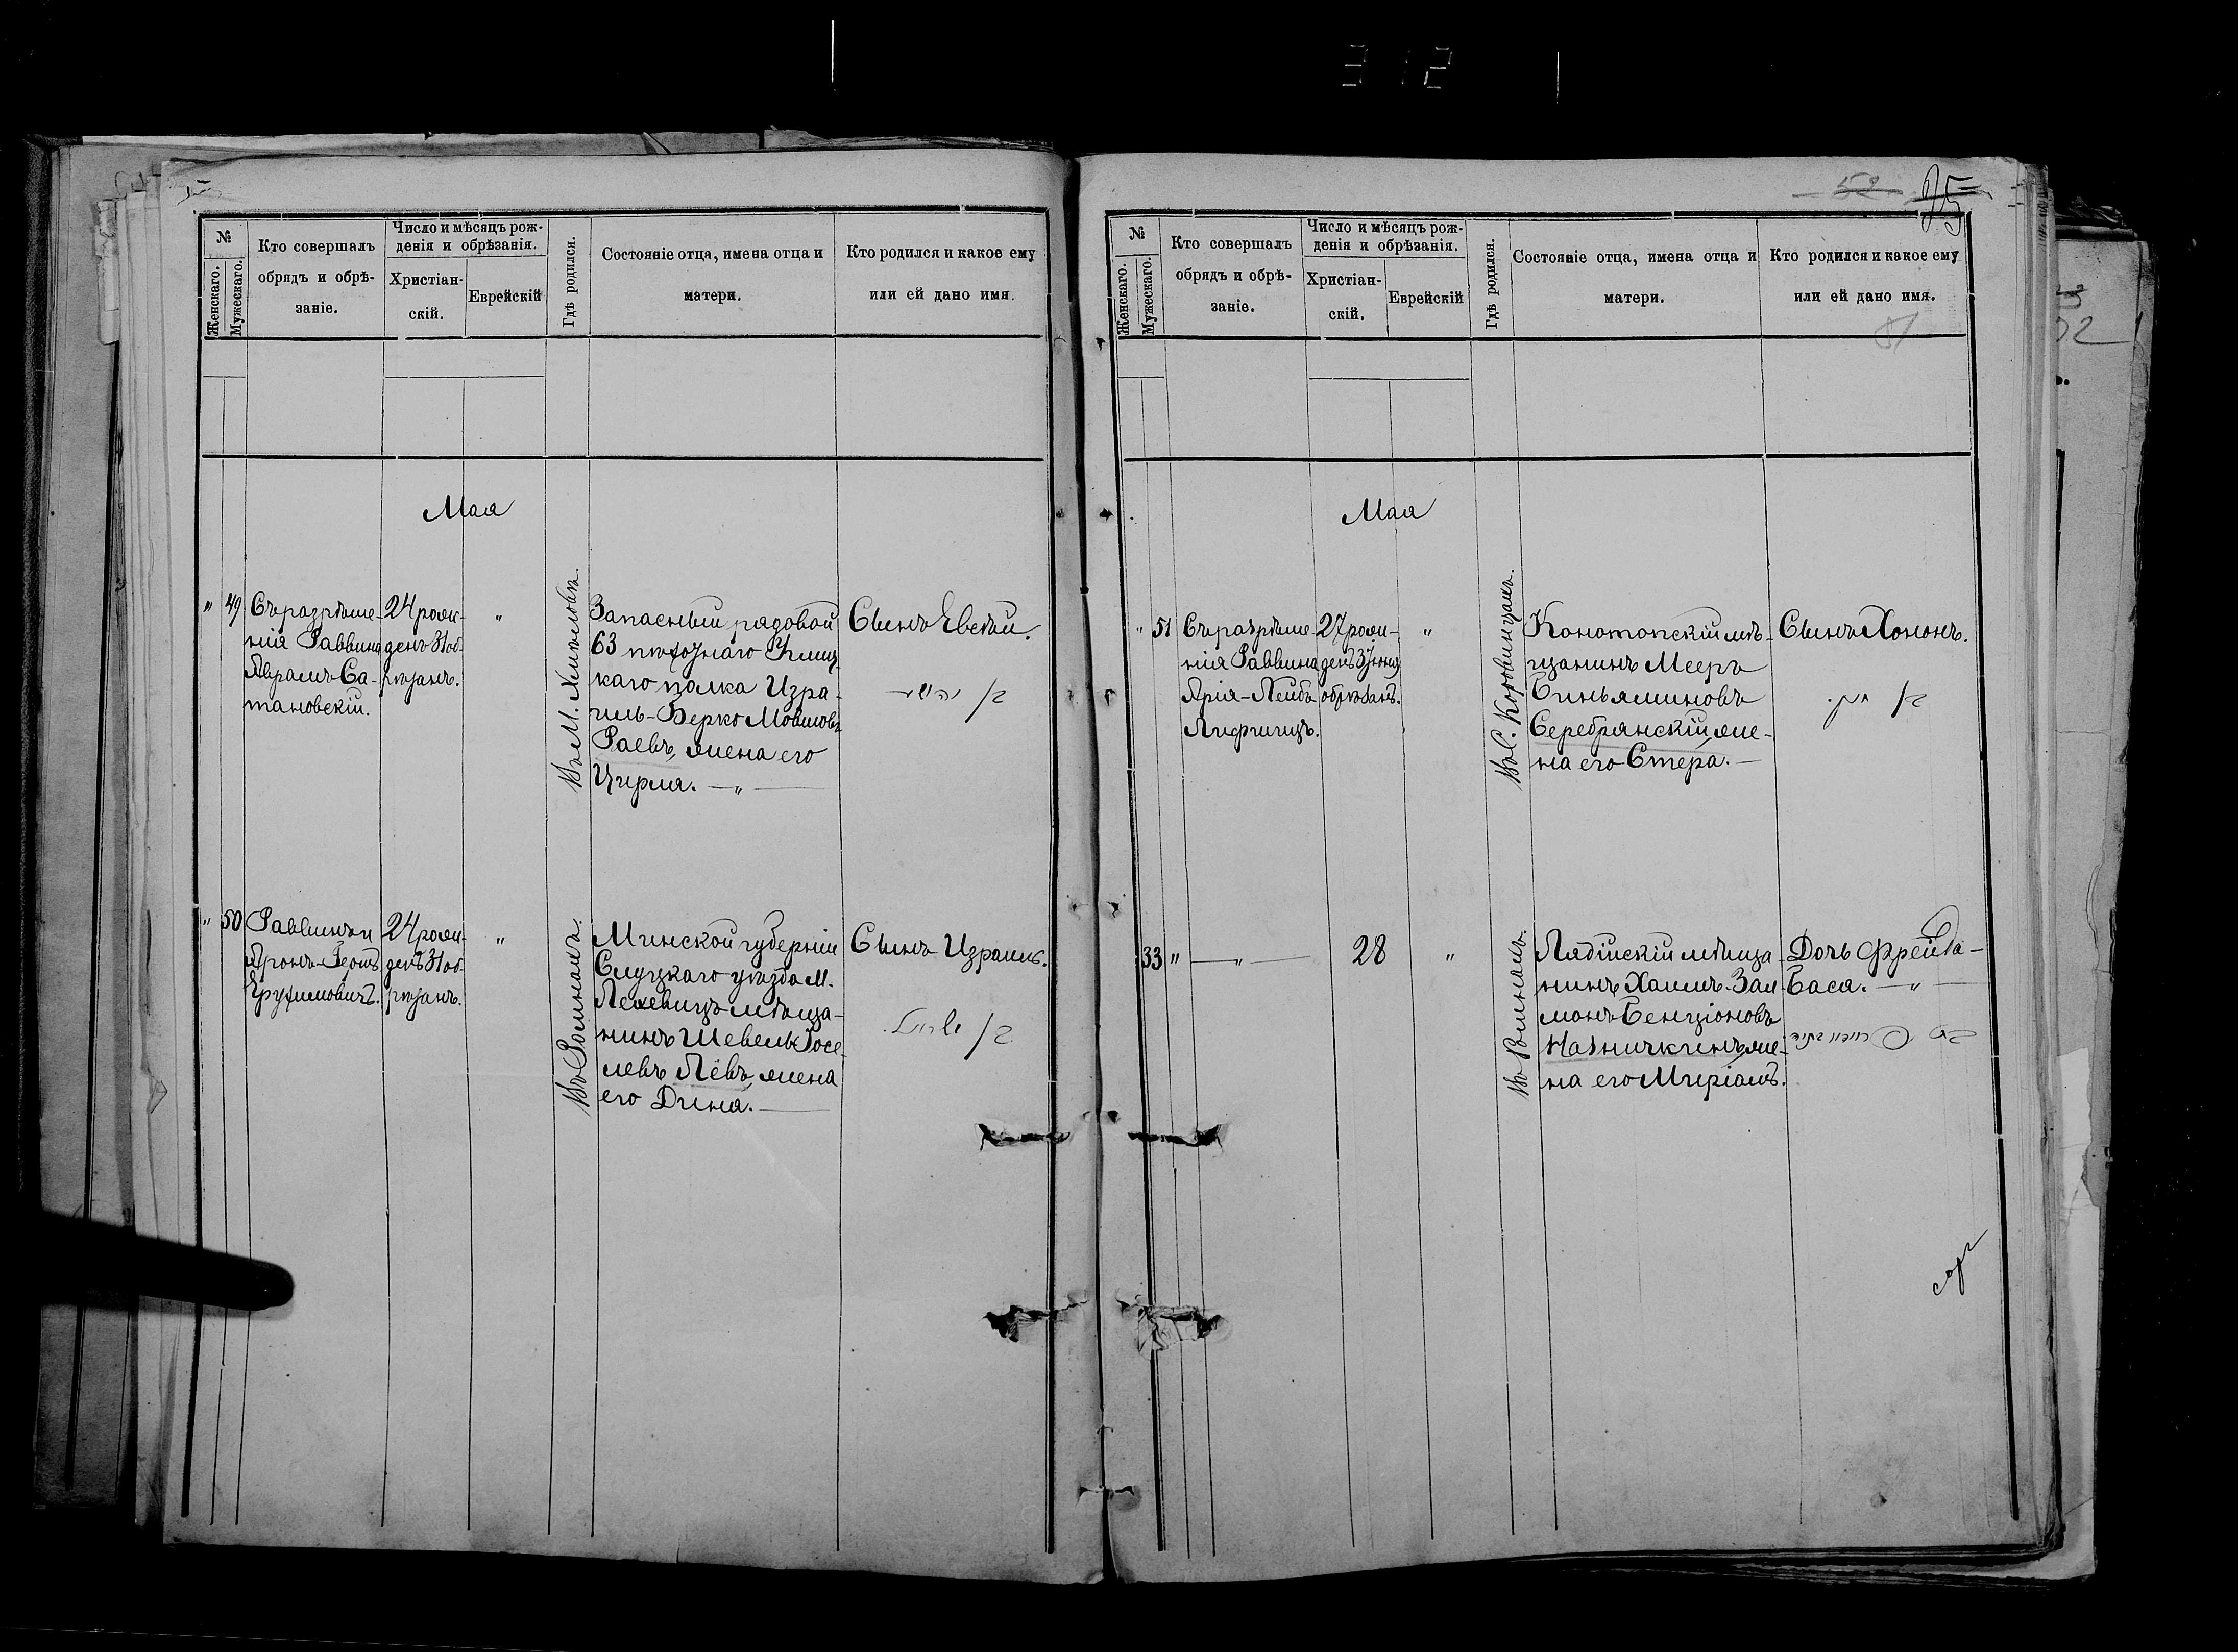 312
№
Женскаго.
Мужескаго.
Кто совершалъ
обрядъ и обрѣ-
заніе.
Число и мѣсяцъ рож-
денія и обрѣзанія.
Христіан-
скій.
Еврейскій
Гдѣ родился.
Состояніе отца, имена отца и
матери.
Кто родился и какое ему
или ей дано имя.
Мая
" 49
Съ разрѣше-
нія Раввина
Абрамъ Са-
тановскій.
24 рож-
денъ 31 об-
рѣзанъ.
"
Запасный рядовой
63 пѣхотнаго Углиц-
каго полка Изра-
иль-Берко Мовшовъ
Раевъ, жена его
Цирля. — " —
Сынъ Евсѣй.
" 50
Раввинъ
Аронъ-Гершъ
Ерухимовичъ.
24 рож-
денъ 31 об-
рѣзанъ.
"
Въ Ромнахъ.
Минской губерніи
Слуцкаго уѣзда М.
Ляховицъ мѣща-
нинъ Шевель Іосе-
левъ Лёвъ, жена
его Дина. —
Сынъ Израиль.
50
25
№
Женскаго.
Мужескаго.
Кто совершалъ
обрядъ и обрѣ-
заніе.
Число и мѣсяцъ рож-
денія и обрѣзанія.
Христіан-
скій.
Еврейскій
Гдѣ родился.
Состояніе отца, имена отца и
матери.
Кто родился и какое ему
или ей дано имя.
51
Мая
" 51
Съ разрѣше-
нія Раввина
Арія-Лейбъ
Лифшицъ.
27 рож-
денъ 3 Іюня
обрѣзанъ.
"
Въ С. Коровинцахъ.
Конотопскій мѣ-
щанинъ Мееръ
Биньяминовъ
Серебрянскій, же-
на его Стера. —
Сынъ Хононъ.
33 "
— " —
28
"
Въ Ромнахъ.
Лядійскій мѣща-
нинъ Хаимъ-Зал-
монъ Бенціоновъ
Мазничкинъ, же-
на его Миріамъ.
Дочь Фрейда-
Бася. — " —